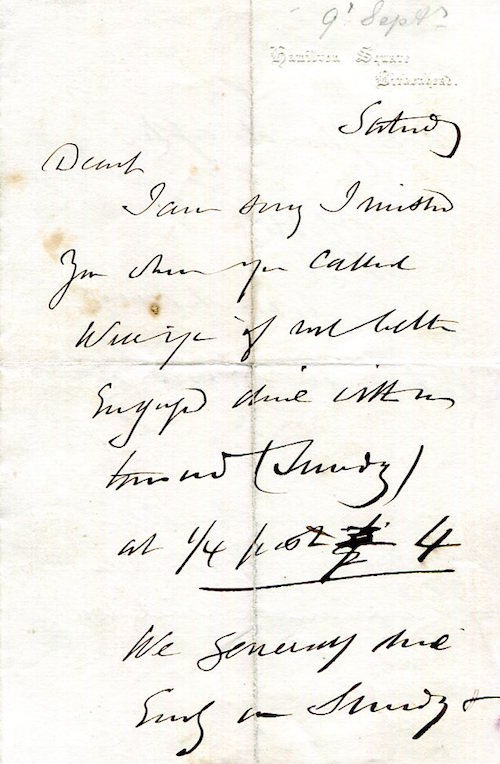 9 Sept
Hamilton Square
Birkenhead.
Saturdy
Dear
I am sorry I missed
You when you called
Will you if not better
Engaged dine with us
tomorrow (Sunday)
at 1/4 past 4
We generally dine
Early on Sundays